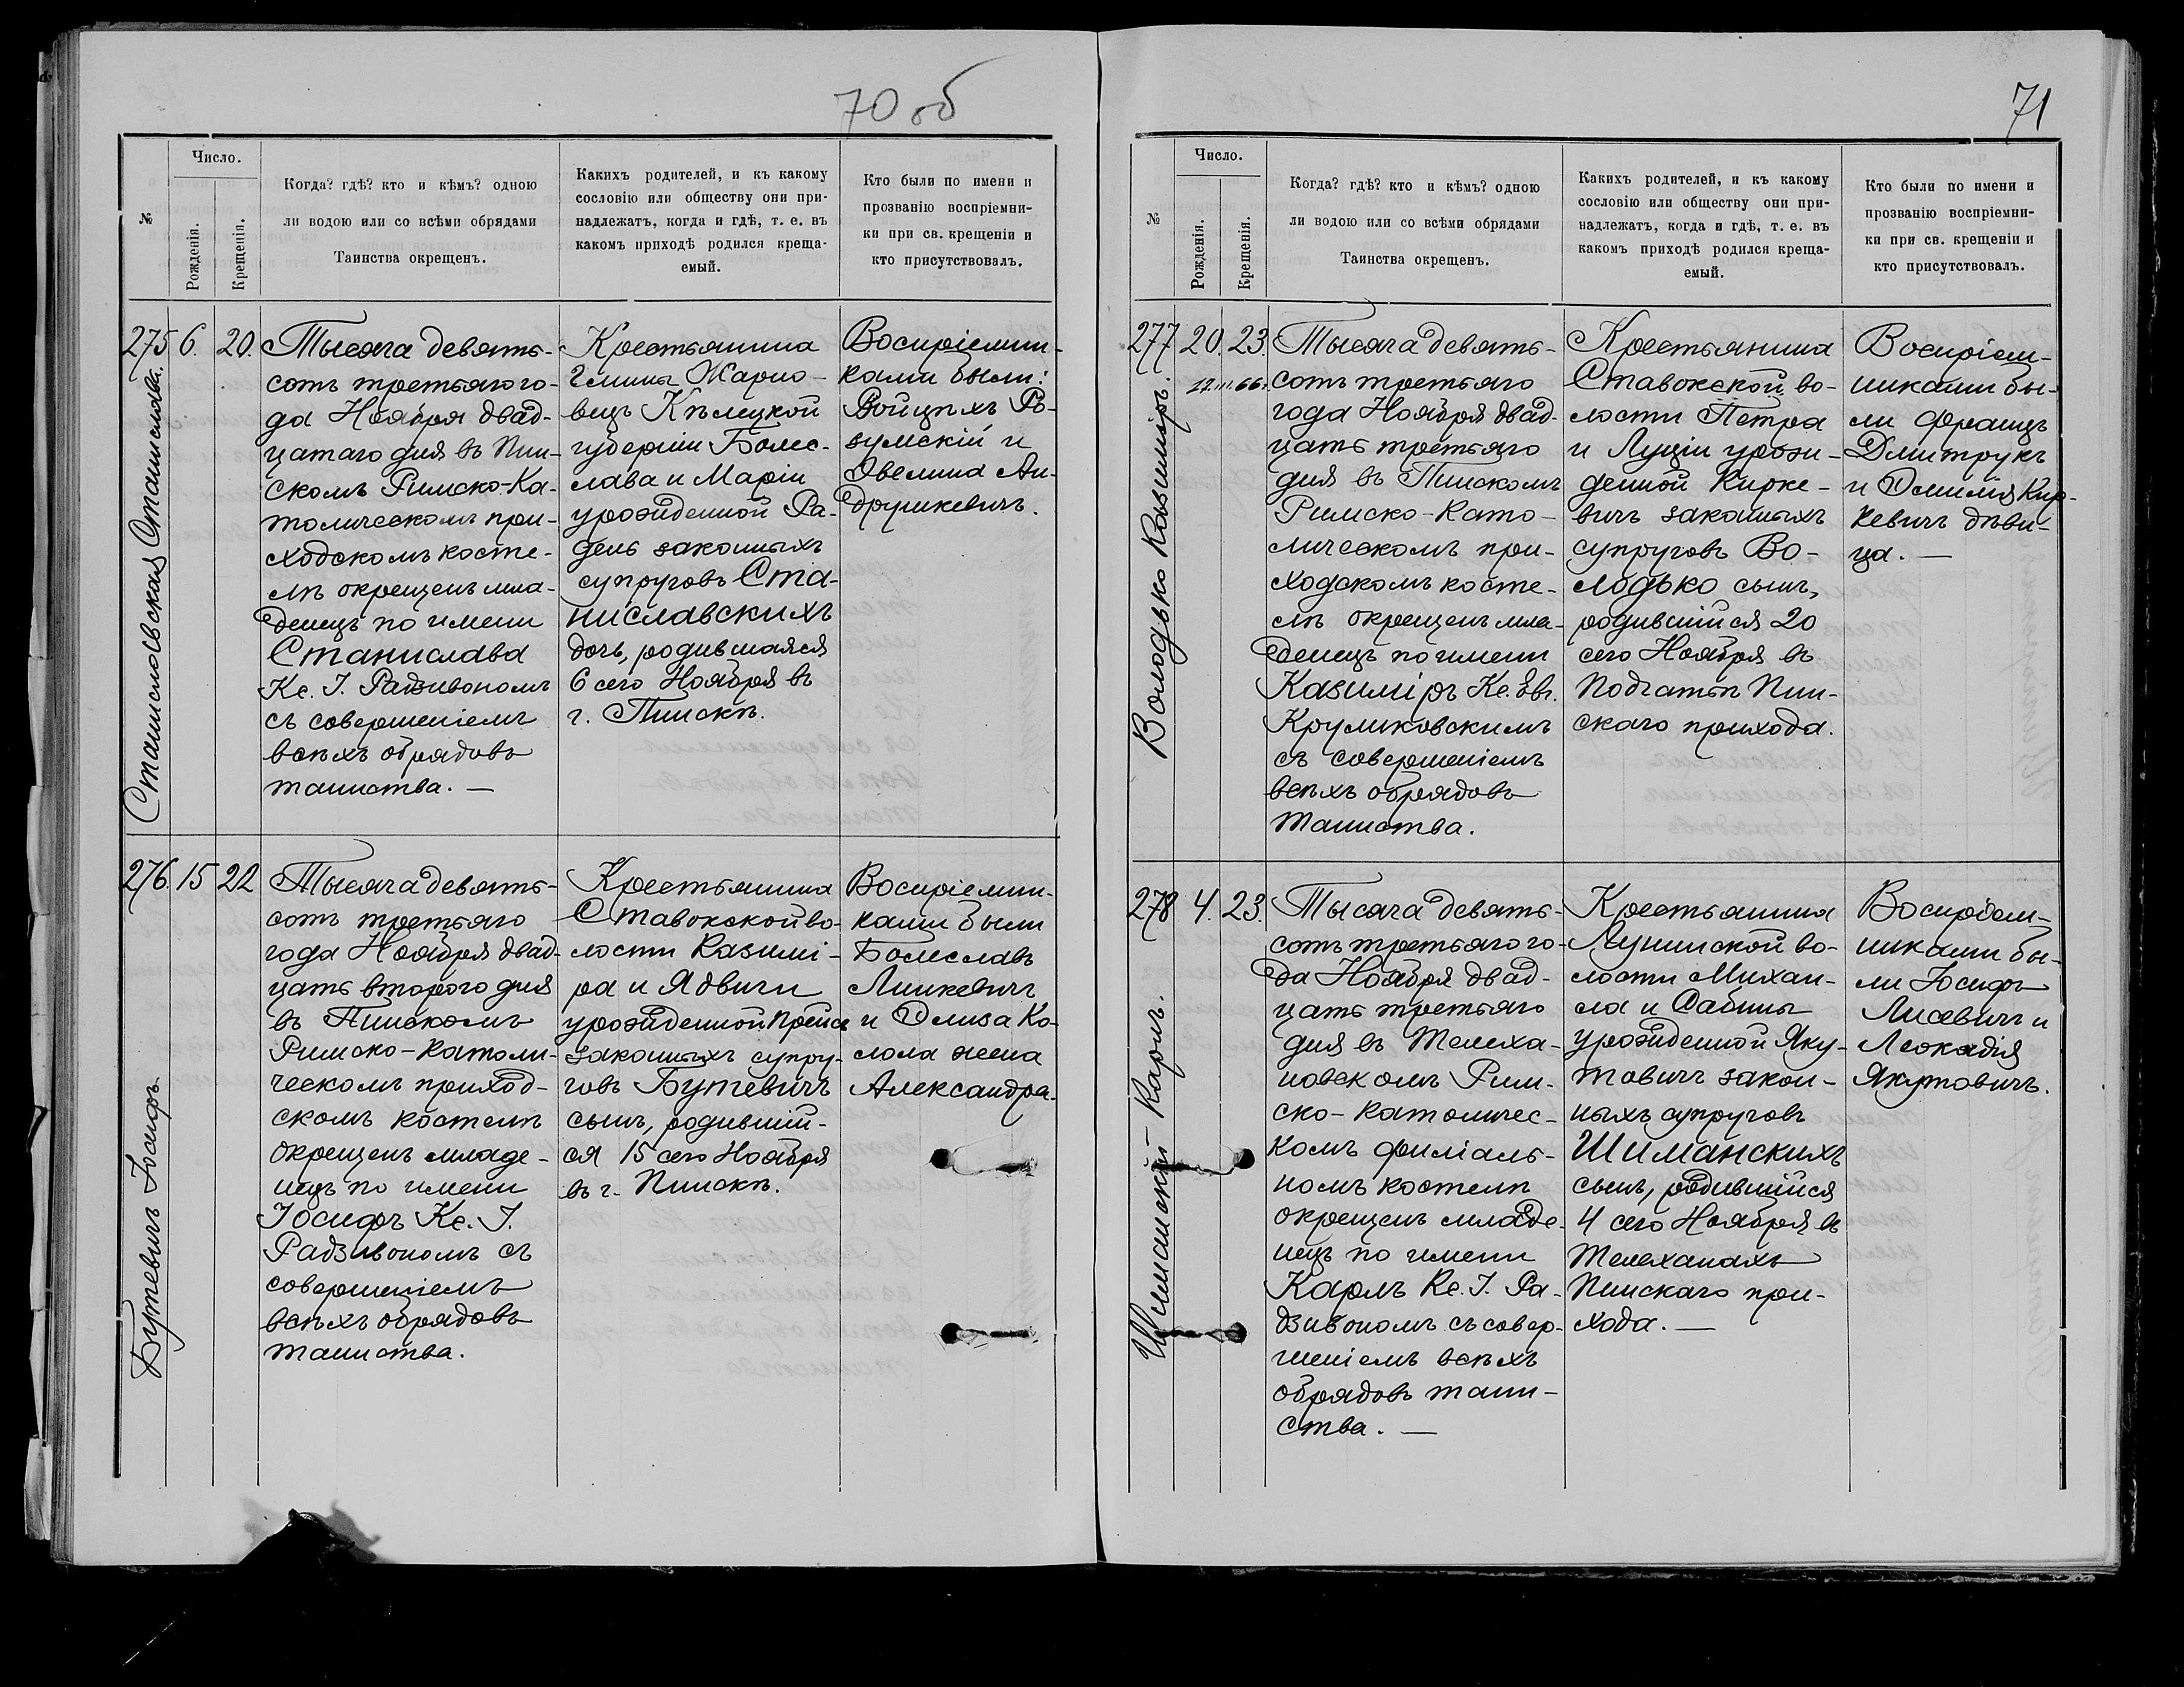 70 об
№
Число.
Рожденія.
Крещенія.
Когда? гдѣ? кто и кѣмъ? одною
ли водою или со всѣми обрядами
Таинства окрещенъ.
Какихъ родителей, и къ какому
сословію или обществу они при-
надлежатъ, когда и гдѣ, т. е. въ
какомъ приходѣ родился креща-
емый.
Кто были по имени и
прозванію воспріемни-
ки при св. крещеніи и
кто присутствовалъ.
275
Станиславская Станислава.
6.
20.
Тысяча девять-
сотъ третьяго го-
да Ноября двад-
цатаго дня въ Пин-
скомъ Римско-Ка-
толическомъ при-
ходскомъ косте-
лѣ окрещенъ мла-
денецъ по имени
Станислава
Кс. І. Радзивономъ
съ совершеніемъ
всѣхъ обрядовъ
таинства. —
Крестьянина
Гмины Жарно-
вецъ Кѣлецкой
губерніи Болес-
лава и Маріи
урожденной Ра-
день законныхъ
супруговъ Ста-
ниславскихъ
дочь, родившаяся
6 сего Ноября въ
г. Пинскѣ.
Воспріемни-
ками были:
Войцѣхъ Ро-
зумскій и
Эвелина Ан-
друшкевичъ.
276.
Бутевичъ Іосифъ
15
22
Тысяча девять-
сотъ третьяго
года Ноября двад-
цать второго дня
въ Пинскомъ
Римско-Католи-
ческомъ приход-
скомъ костелѣ
окрещенъ младе-
нецъ по имени
Іосифъ Кс. І.
Радзивономъ съ
совершеніемъ
всѣхъ обрядовъ
таинства.
Крестьянина
Ставокской во-
лости Казимі-
ра и Ядвиги
урожденной Прейсъ
законныхъ супру-
говъ Бутевичъ
сынъ, родивший-
ся 15 сего Ноября
въ г. Пинскѣ.
Воспріемни-
ками были
Болеславъ
Линкевичъ
и Элиза Ко-
лола жена
Александра.
71
№
Число.
Рожденія.
Крещенія.
Когда? гдѣ? кто и кѣмъ? одною
ли водою или со всѣми обрядами
Таинства окрещенъ.
Какихъ родителей, и къ какому
сословію или обществу они при-
надлежатъ, когда и гдѣ, т. е. въ
какомъ приходѣ родился креща-
емый.
Кто были по имени и
прозванію воспріемни-
ки при св. крещеніи и
кто присутствовалъ.
277
Володько Казиміръ.
20.
23.
12.III.66.
Тысяча девять-
сотъ третьяго
года Ноября двад-
цать третьяго
дня въ Пинскомъ
Римско-Като-
лическомъ при-
ходскомъ косте-
лѣ окрещенъ мла-
денецъ по имени
Казиміръ Кс. Эвг.
Круликовскимъ
съ совершеніемъ
всѣхъ обрядовъ
таинства.
Крестьянина
Ставокской во-
лости Петра
и Луціи урож-
денной Кирке-
вичъ законныхъ
супруговъ Во-
лодько сынъ,
родившійся 20
сего Ноября въ
Подгатѣ Пин-
скаго прихода.
Воспріем-
никами бы-
ли Францъ
Дмитрукъ
и Эмилія Кир-
кевичъ дѣви-
ца. —
278
Шиманскій Карлъ.
4.
23.
Тысяча девять-
сотъ третьяго го-
да Ноября двад-
цать третьяго
дня въ Телеха-
новскомъ Рим-
ско-Католичес-
комъ филіаль-
номъ костелѣ
окрещенъ младе-
нецъ по имени
Карлъ Кс. І. Ра-
дзивономъ съ совер-
шеніемъ всѣхъ
обрядовъ таин-
ства. —
Крестьянина
Лунинской во-
лости Михаи-
ла и Сабины
урожденной Яку-
товичъ закон-
ныхъ супруговъ
Шиманскихъ
сынъ, родившійся
4 сего Ноября въ
Телеханахъ
Пинскаго при-
хода. —
Воспріем-
никами бы-
ли Іосифъ
Лисевичъ и
Леокадія
Якутовичъ.